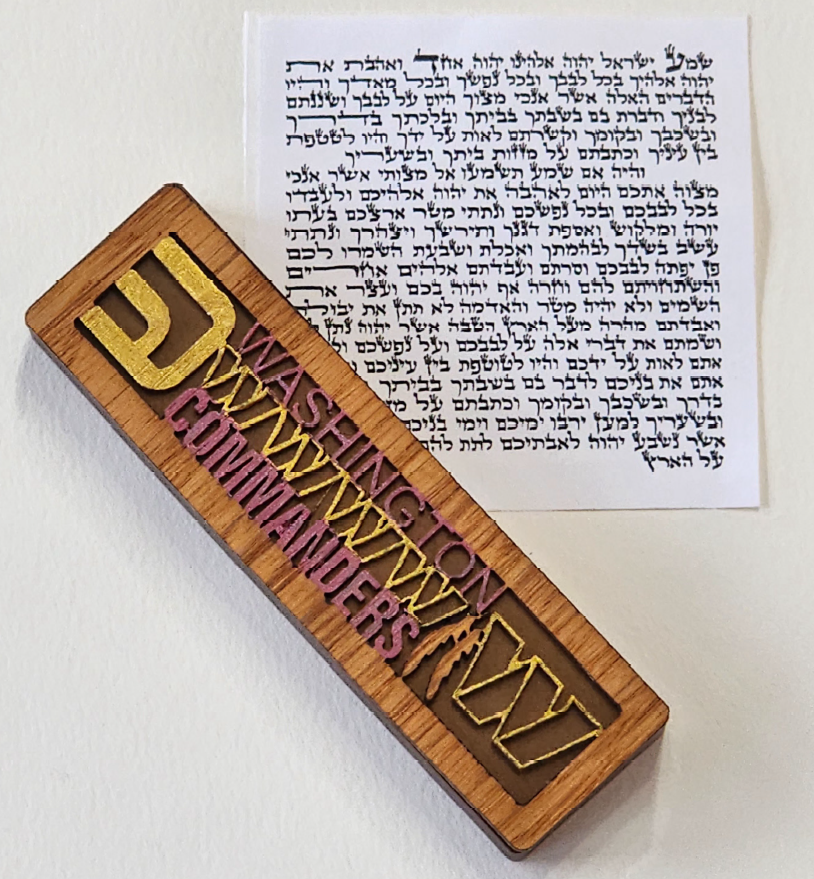 שמע ישראל יהוה אלהינו יהוה אחד ואהבת את
יהוה אלהיך בכל לבבך ובכל נפשך ובכל מאדך והיו
הדברים האלה אשר אנכי מצוך היום על לבבך ושננתם
לבניך ודברת בם בשבתך בביתך ובלכתך בדרך
ובשכבך ובקומך וקשרתם לאות על ידך והיו לטטפת
בין עיניך וכתבתם על מזזות ביתך ובשעריך
והיה אם שמע תשמעו אל מצותי אשר אנכי
מצוה אתכם היום לאהבה את יהוה אלהיכם ולעבדו
בכל לבבכם ובכל נפשכם ונתתי מטר ארצכם בעתו
יורה ומלקוש ואספת דגנך ותירשך ויצהרך ונתתי
עשב בשדך לבהמתך ואכלת ושבעת השמרו לכם
פן יפתה לבבכם וסרתם ועבדתם אלהים אחרים
והשתחויתם להם וחרה אף יהוה בכם ועצר את
השמים ולא יהיה מטר והאדמה לא תתן את יבולה
ואבדתם מהרה מעל הארץ הטבה אשר יהוה נתן
ושמתם את דברי אלה על לבבכם ועל נפשכם
אתם לאות על ידכם והיו לטוטפת בין עיניכם
אתם את בניכם לדבר בם בשבתך בביתך
בדרך ובשכבך ובקומך וכתבתם על
ובשעריך למען ירבו ימיכם וימי בניכם
אשר נשבע יהוה לאבתיכם לתת להם
על הארץ
ש
WASHINGTON
WWWWWW
COMMANDERS
W